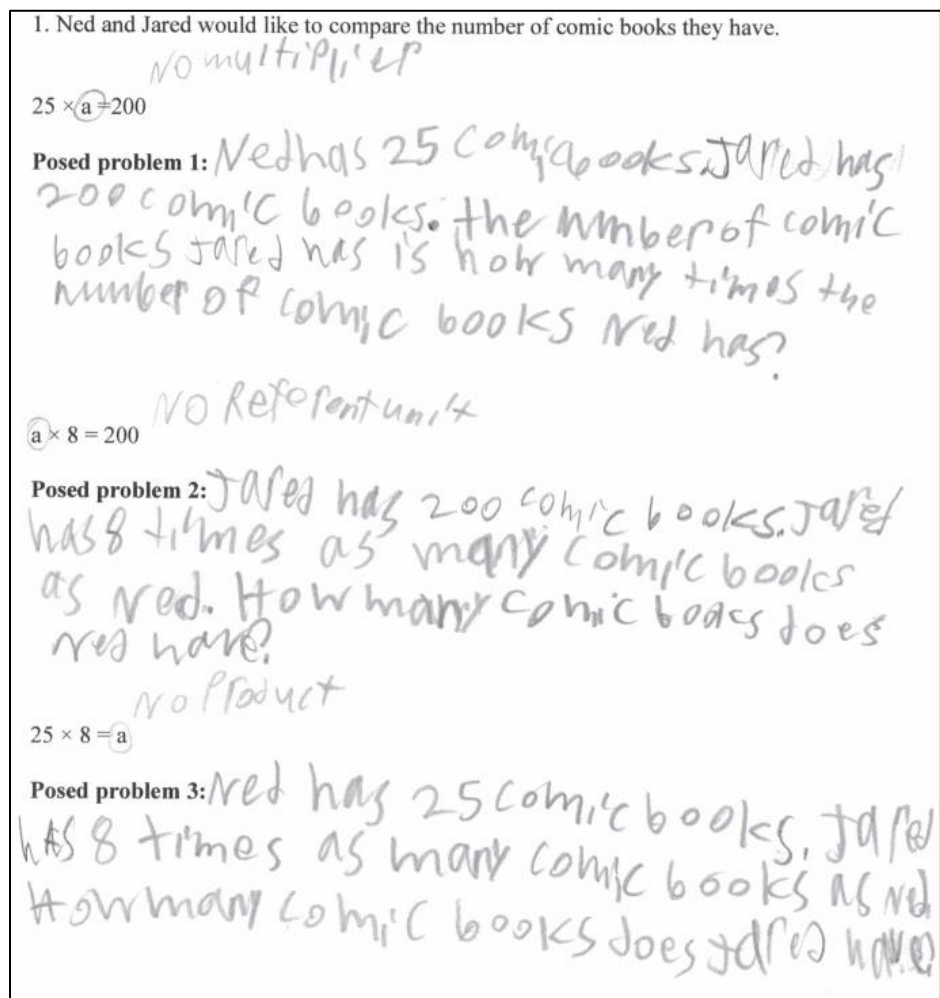 1. Ned and Jared would like to compare the number of comic books they have.
No multiplier
25 × a = 200
Posed problem 1: Ned has 25 comic books. Jared has
200 comic books. the number of comic
books Jared has is how many times the
number of comic books Ned has?
No Referent unit
a × 8 = 200
Posed problem 2: Jared has 200 comic books. Jared
has 8 times as many comic books
as Ned. How many comic books does
Ned have?
No Product
25 × 8 = a
Posed problem 3: Ned has 25 comic books. Jared
has 8 times as many comic books as Ned.
How many comic books does Jared have?